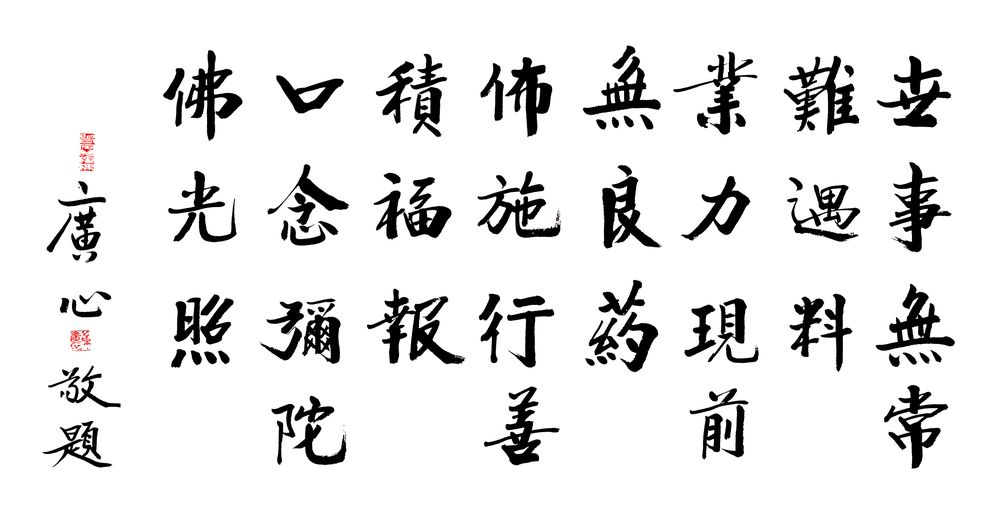 世事無常
難遇料
業力現前
無良葯
佈施行善
積福報
口念彌陀
佛光照
廣心敬題